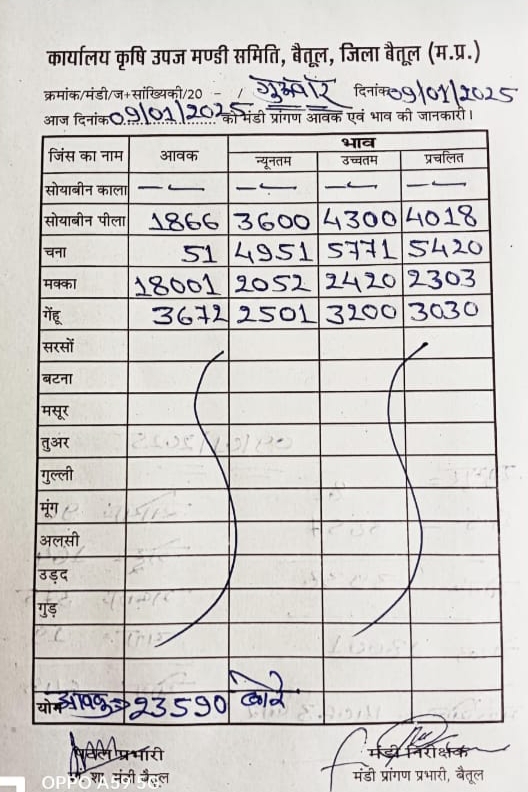 कार्यालय कृषि उपज मण्डी समिति, बैतूल, जिला बैतूल (म.प्र.)
क्रमांक/मंडी/ज+सांख्यिकी/20 - / गुरूवार दिनांक 09/01/2025
आज दिनांक 09/01/2025 को मंडी प्रांगण आवक एवं भाव की जानकारी।
जिंस का नाम आवक भाव
न्यूनतम उच्चतम प्रचलित
सोयाबीन काला — — — —
सोयाबीन पीला 1866 3600 4300 4018
चना 51 4951 5771 5420
मक्का 18001 2052 2420 2303
गेंहू 3672 2501 3200 3030
सरसों
बटना
मसूर
तुअर
गुल्ली
मूंग
अलसी
उड़द
गुड़
योग आवक 23590 बोरे
प्रभारी मंडी निरीक्षक
शा. मंडी बैतूल मंडी प्रांगण प्रभारी, बैतूल
OPPO A59 5G